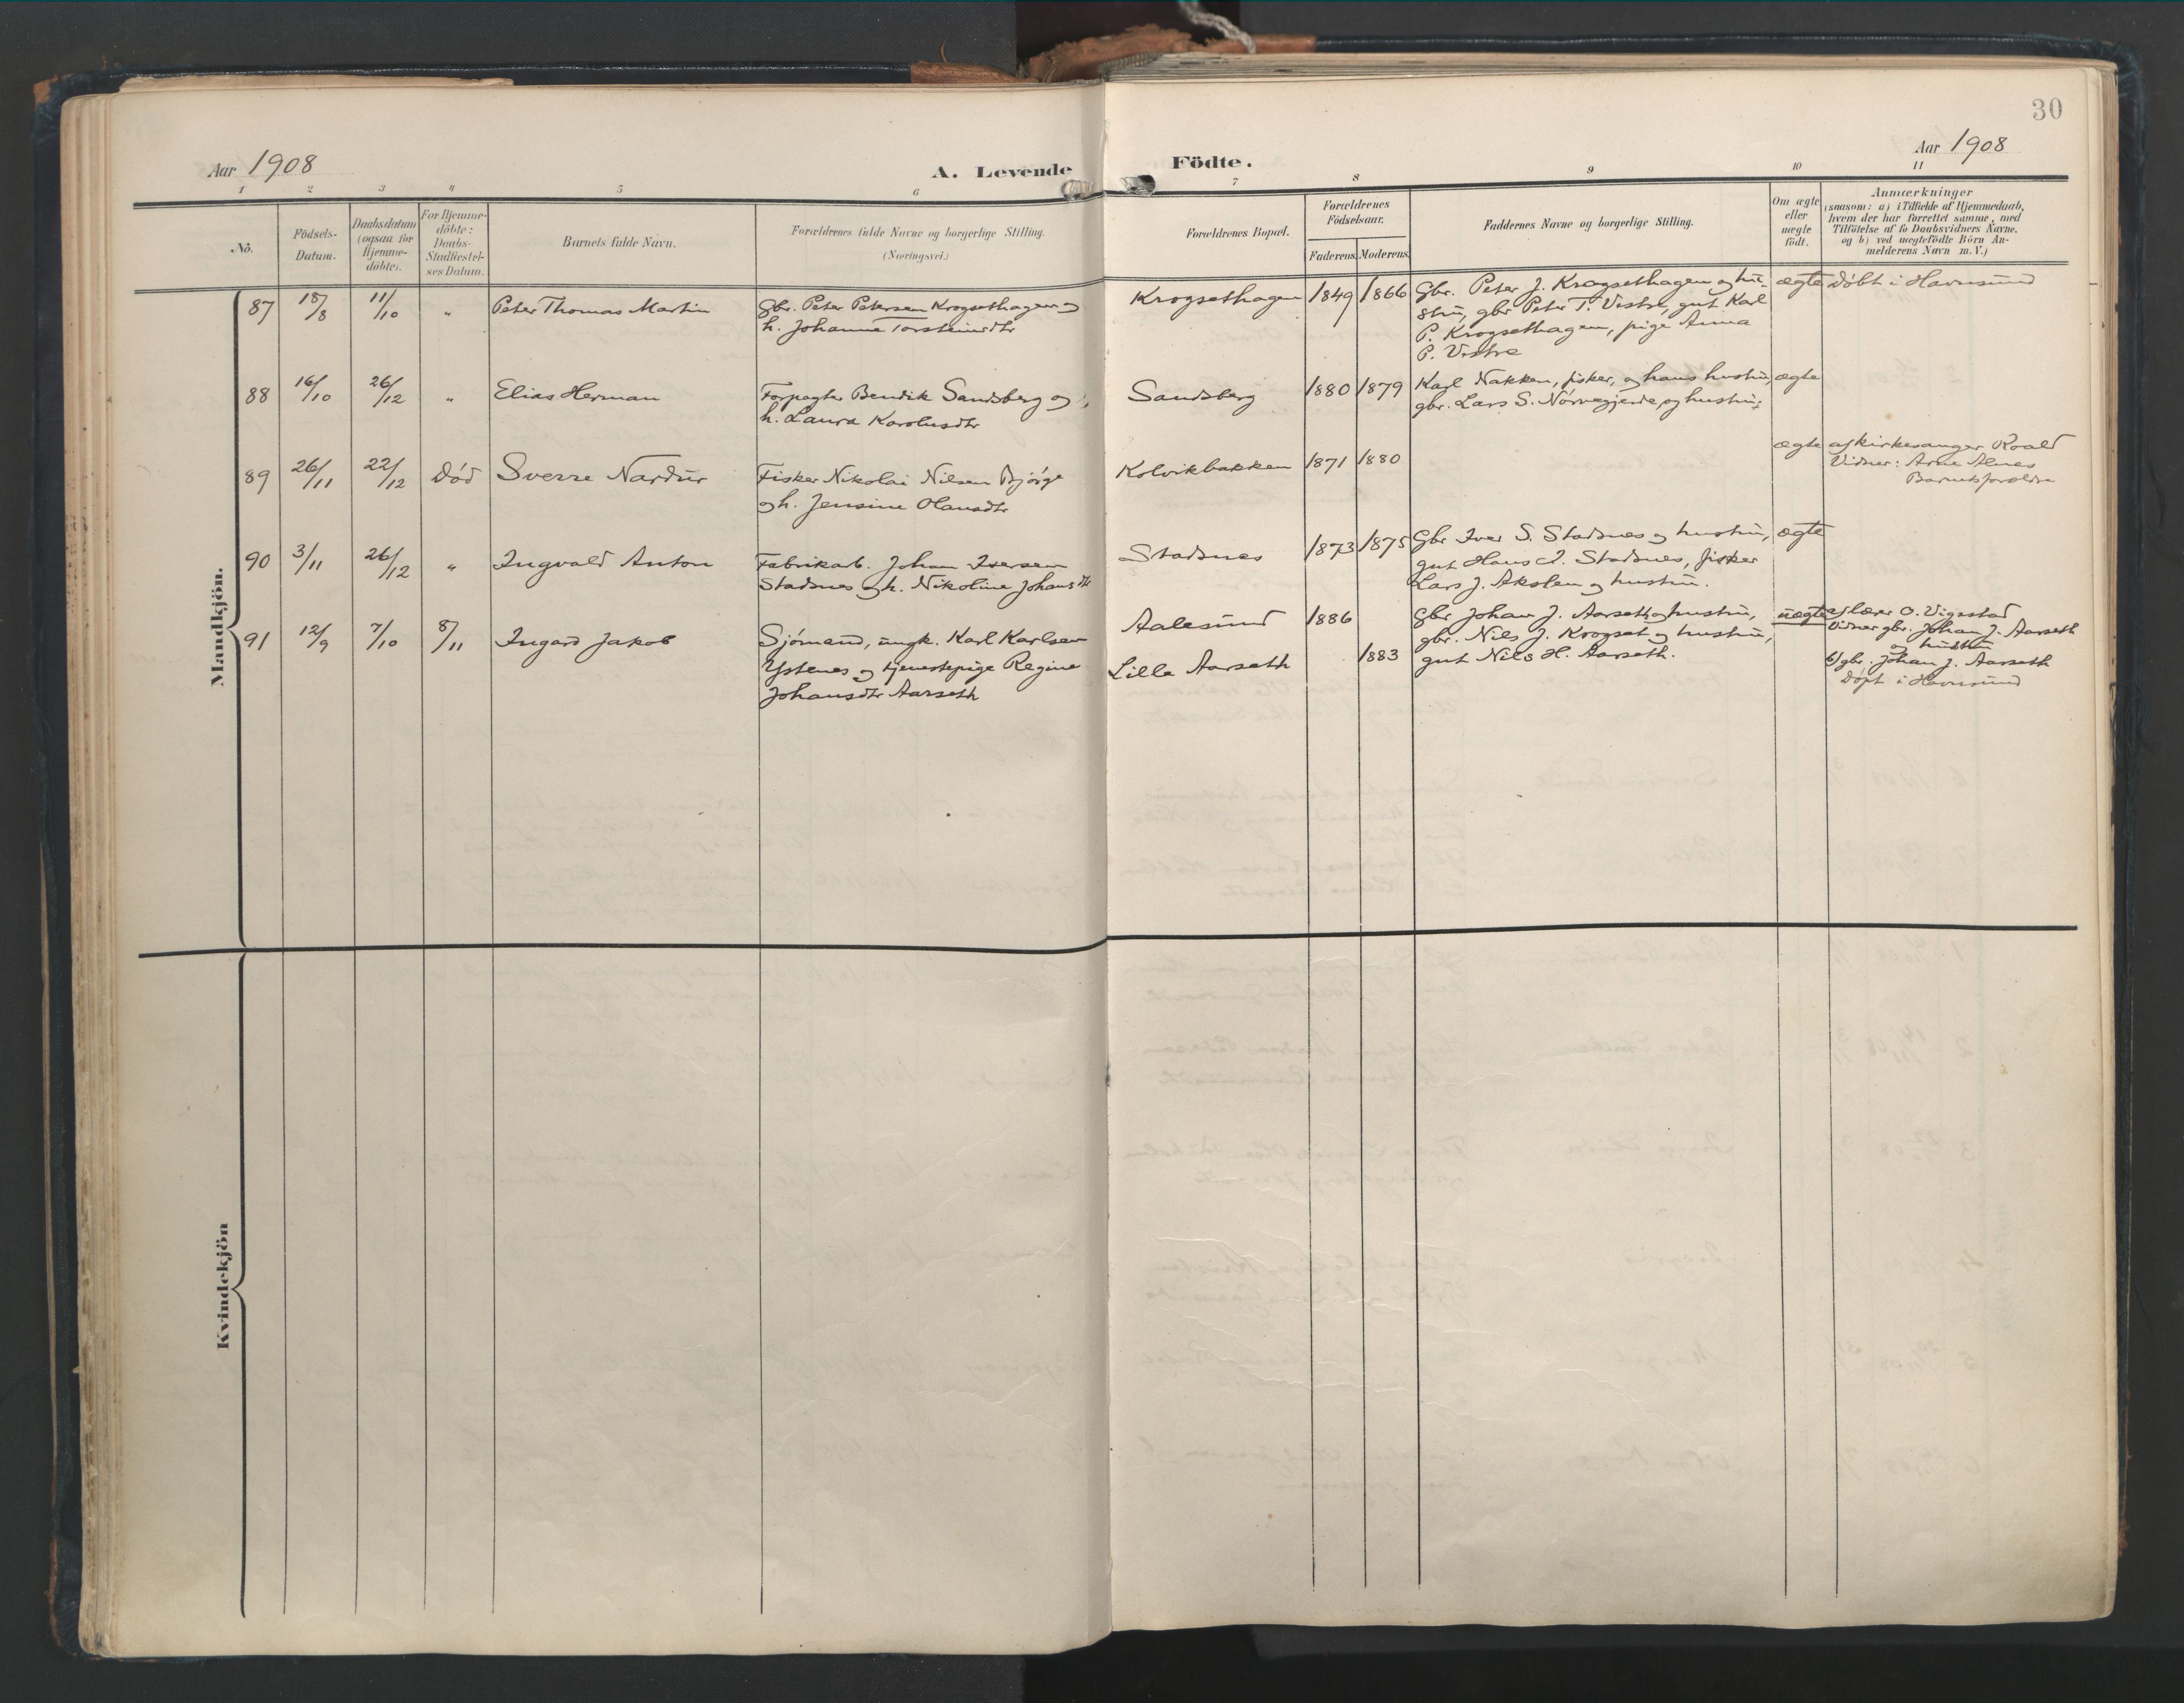 30
Aar 1908
A. Levende Födte.
Aar 1908
1 2 3 4 5 6 7 8 9 10 11
No.
Födsels-
Datum.
Daabsdatum
(ogsaa for
Hjemme-
döbte).
For Hjemme-
döbte:
Daabs-
Stadfæstel-
ses Datum.
Barnets fulde Navn.
Forældrenes fulde Navne og borgerlige Stilling.
(Næringsvei.)
Forældrenes Bopæl.
Forældrenes
Födselsaar.
Faderens. Moderens.
Faddernes Navne og borgerlige Stilling.
Om ægte
eller
uægte
födt.
Anmærkninger
(saasom: a) i Tilfælde af Hjemmedaab,
hvem der har forrettet samme, med
Tilföielse af to Daabsvidners Navne,
og b) ved uægtefödte Börn An-
melderens Navn m.V.)
Mandkjön.
87 18/8 11/10 " Peter Thomas Martin
Gbr. Peter Petersen Krogsethagen og
h. Johanne Torsteinsdtr
Krogsethagen 1849 1866
Gbr. Peter J. Krogsethagen og hu-
stru, gbr Peter T. Vestre, gut Karl
P. Krogsethagen, pige Anna
P. Vestre
ægte
Døbt i Havnsund
88 16/10 26/12 " Elias Herman
Forpagter Bendik Sandsberg og
h. Laura Karolusdtr
Sandsberg 1880 1879
Karl Nakken, fisker, og hans hustru,
gbr. Lars S. Nørvegjerde og hustru;
ægte
89 26/11 22/12 Død Sverre Nardur
Fisker Nikolai Nilsen Bjørge
og h. Jensine Olausdtr
Kolvikbakken 1871 1880
ægte
a) kirkesanger Roald
Vidner: Arne Alnes
Barnets forældre
90 3/11 26/12 " Ingvald Anton
Fabrikarb. Johan Iversen
Stadsnes og h. Nikoline Johansdtr
Stadsnes 1873 1875
Gbr Iver S. Stadsnes og hustru,
gut Hans I. Stadsnes, fisker
Lars J. Akslen og hustru.
ægte
91 12/9 7/10 8/11 Ingard Jakob
Sjømand, ungk. Karl Karlsen
Ystenes og tjenestepige Regine
Johansdtr Aarseth
Aalesund 1886
Lille Aarseth 1883
Gbr Johan J. Aarseth og hustru,
gbr. Nils J. Krogset og hustru,
gut Nils H. Aarseth.
uægte
a) lærer O. Vigestad
Vidner gbr. Johan J. Aarseth
og hustru
b) gbr. Johan J. Aarseth
Døpt i Havnsund
Kvindekjön